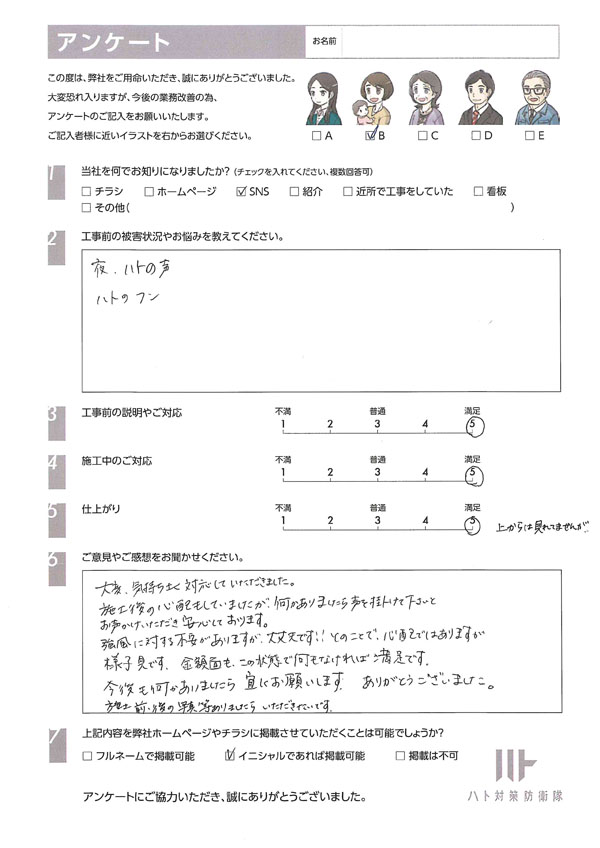 アンケート
お名前
この度は、弊社をご用命いただき、誠にありがとうございました。
大変恐れ入りますが、今後の業務改善の為、
アンケートのご記入をお願いいたします。
ご記入者様に近いイラストを右からお選びください。
□A ☑B □C □D □E
1 当社を何でお知りになりましたか？(チェックを入れてください、複数回答可)
□チラシ □ホームページ ☑SNS □紹介 □近所で工事をしていた □看板
□その他( )
2 工事前の被害状況やお悩みを教えてください。
夜、ハトの声
ハトのフン
3 工事前の説明やご対応
不満 普通 満足
1 2 3 4 5
4 施工中のご対応
不満 普通 満足
1 2 3 4 5
5 仕上がり
不満 普通 満足
1 2 3 4 5
上からは見れてませんが
6 ご意見やご感想をお聞かせください。
大変、気持ち良く対応していただきました。
施工後の心配もしていましたが、何かありましたら声を掛けて下さいと
お声かけいただき安心しております。
強風に対する不安がありますが、大丈夫です!!とのことで、心配ではありますが
様子見です。金額面も、この状態で何もなければ満足です。
今後も何かありましたら宜しくお願いします。ありがとうございました。
施工前・後の写真等ありましたらいただきたいです。
7 上記内容を弊社ホームページやチラシに掲載させていただくことは可能でしょうか？
□フルネームで掲載可能 ☑イニシャルであれば掲載可能 □掲載は不可
アンケートにご協力いただき、誠にありがとうございました。
ハト対策防衛隊